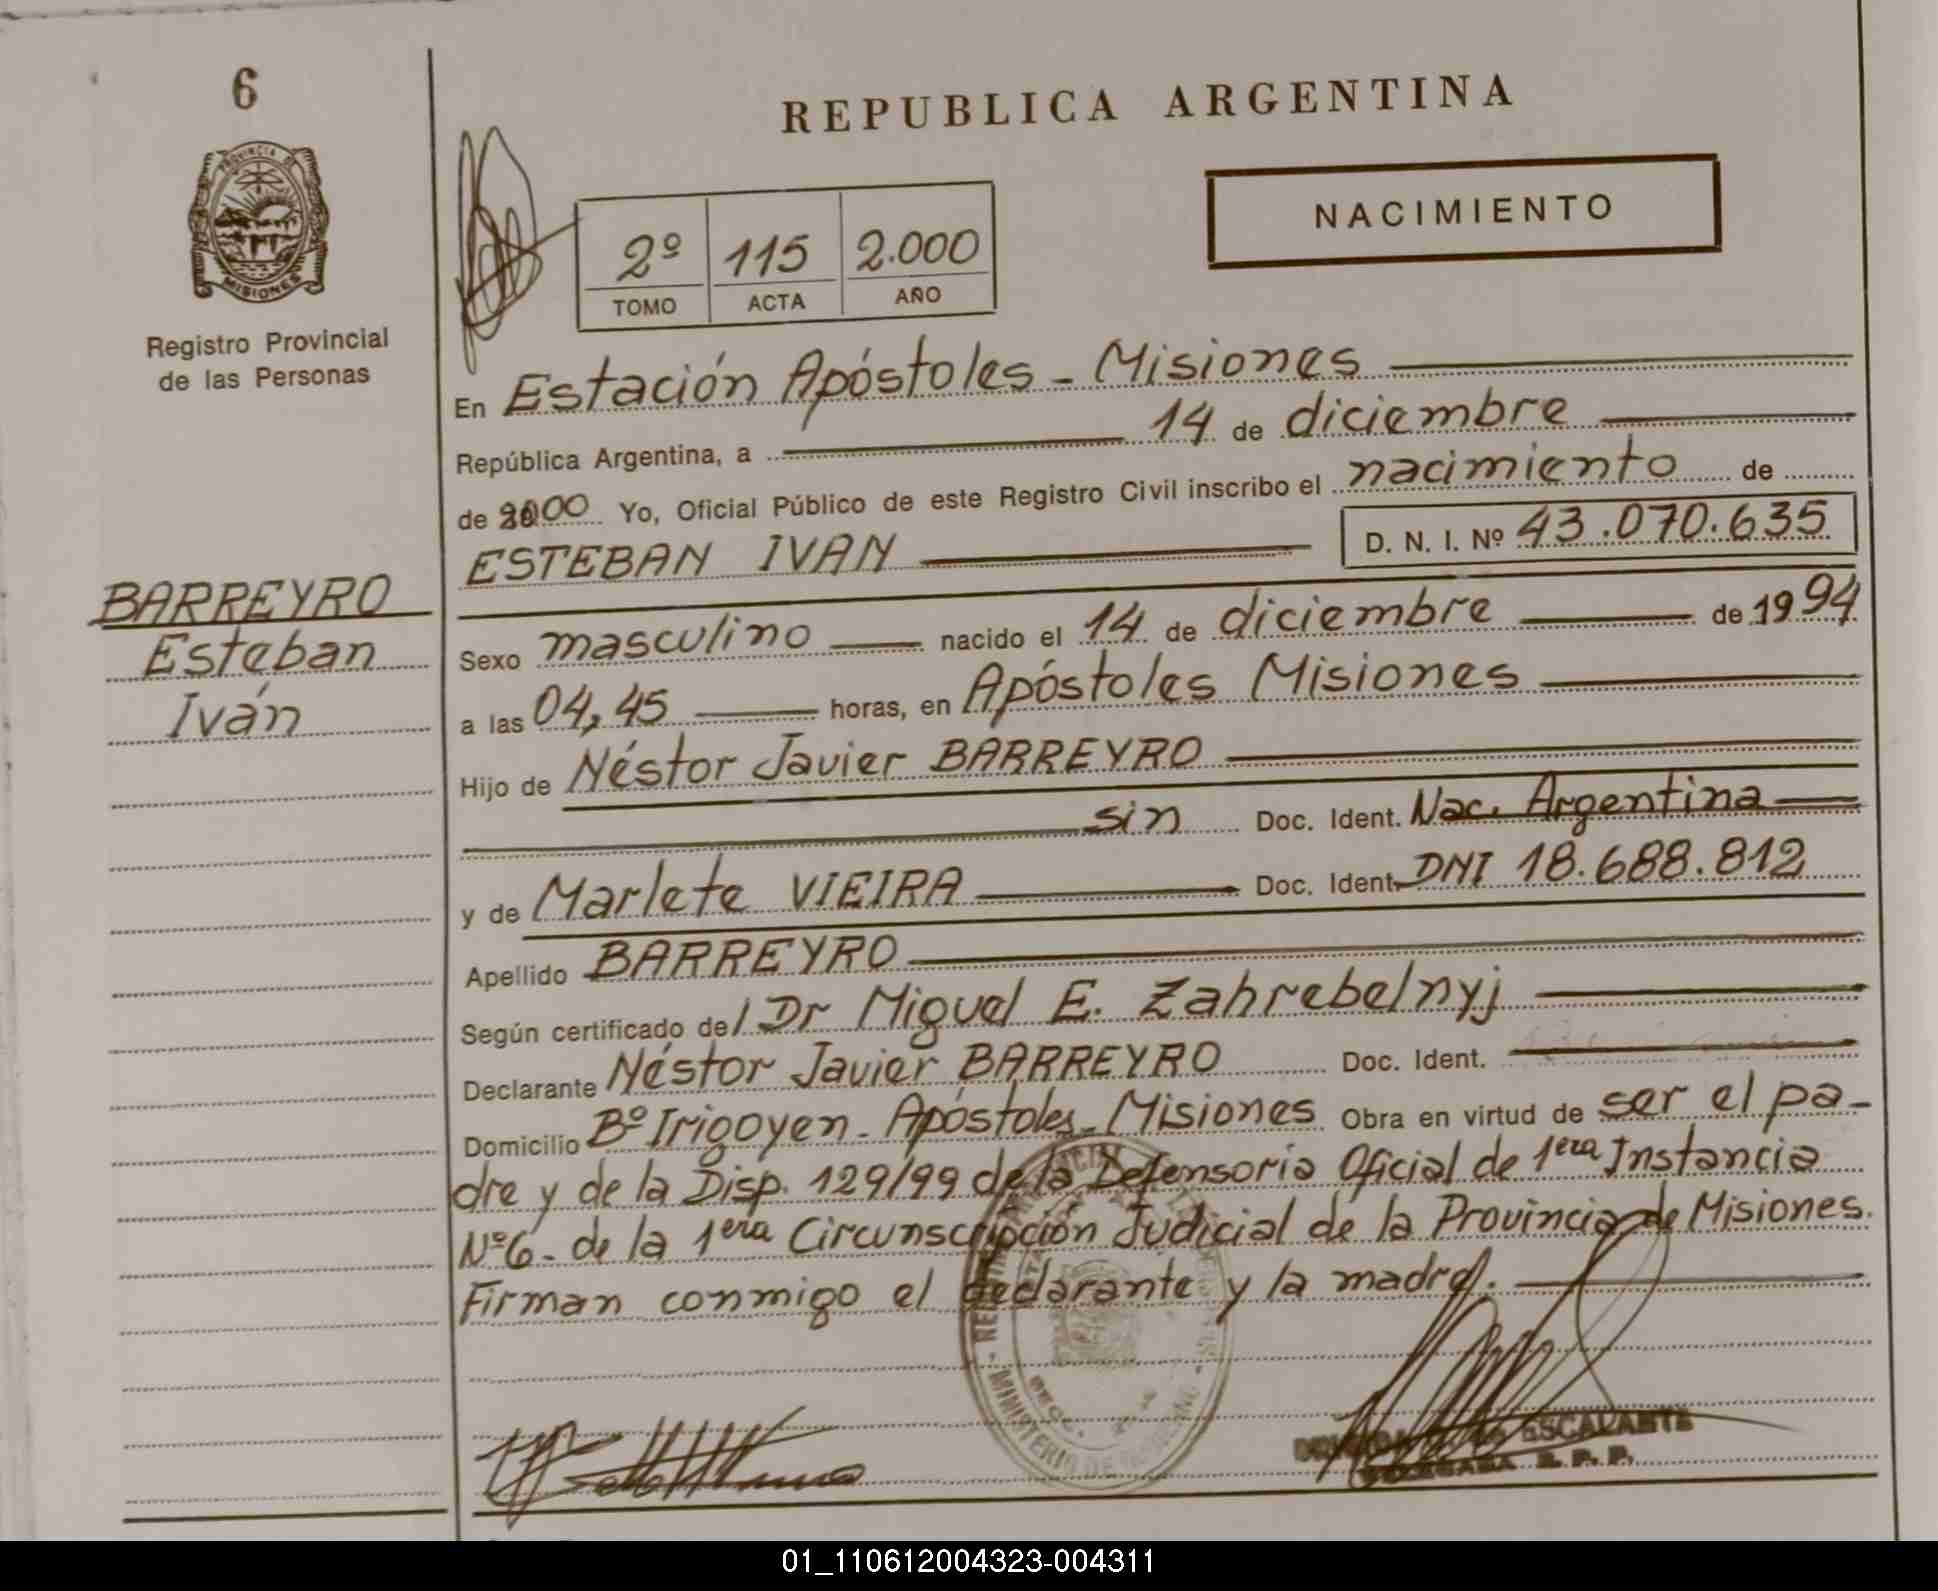 6
REPUBLICA ARGENTINA
PROVINCIA DE
MISIONES
NACIMIENTO
2º 115 2.000
TOMO ACTA AÑO
Registro Provincial
de las Personas
En Estación Apóstoles - Misiones
República Argentina, a 14 de diciembre
de 2000 Yo, Oficial Público de este Registro Civil inscribo el nacimiento de
ESTEBAN IVAN D. N. I. Nº 43.070.635
BARREYRO
Esteban
Iván
Sexo masculino nacido el 14 de diciembre de 1994
a las 04,45 horas, en Apóstoles Misiones
Hijo de Néstor Javier BARREYRO
sin Doc. Ident. Nac. Argentina
y de Marlete VIEIRA Doc. Ident. DNI 18.688.812
Apellido BARREYRO
Según certificado del Dr Miguel E. Zahrebelnyj
Declarante Néstor Javier BARREYRO Doc. Ident.
Domicilio Bº Irigoyen - Apóstoles - Misiones Obra en virtud de ser el pa-
dre y de la Disp. 129/99 de la Defensoría Oficial de 1era Instancia
Nº6 - de la 1era Circunscripción Judicial de la Provincia de Misiones.
Firman conmigo el declarante y la madre.
MINISTERIO DE
ESCALANTE
R. P. P.
01_110612004323-004311